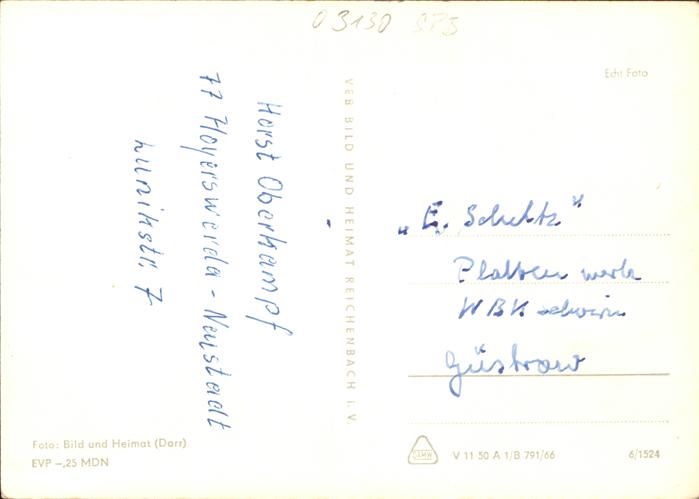 03130
Echt Foto
Horst Oberkampf
77 Hoyerswerda - Neustadt
Lunikstr. 7
VEB BILD UND HEIMAT REICHENBACH I. V.
„E. Schultz"
Plattenwerk
WBK Schwerin
Güstrow
Foto: Bild und Heimat (Darr)
EVP –,25 MDN
V 11 50 A 1/B 791/66
6/1524